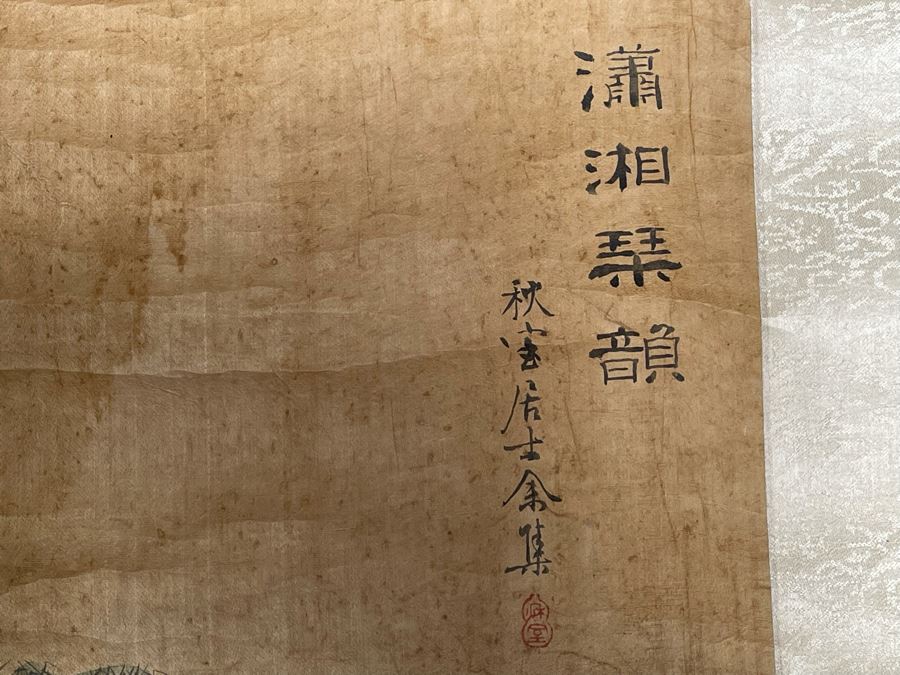 瀟湘琴韻
秋室居士余集
秋室